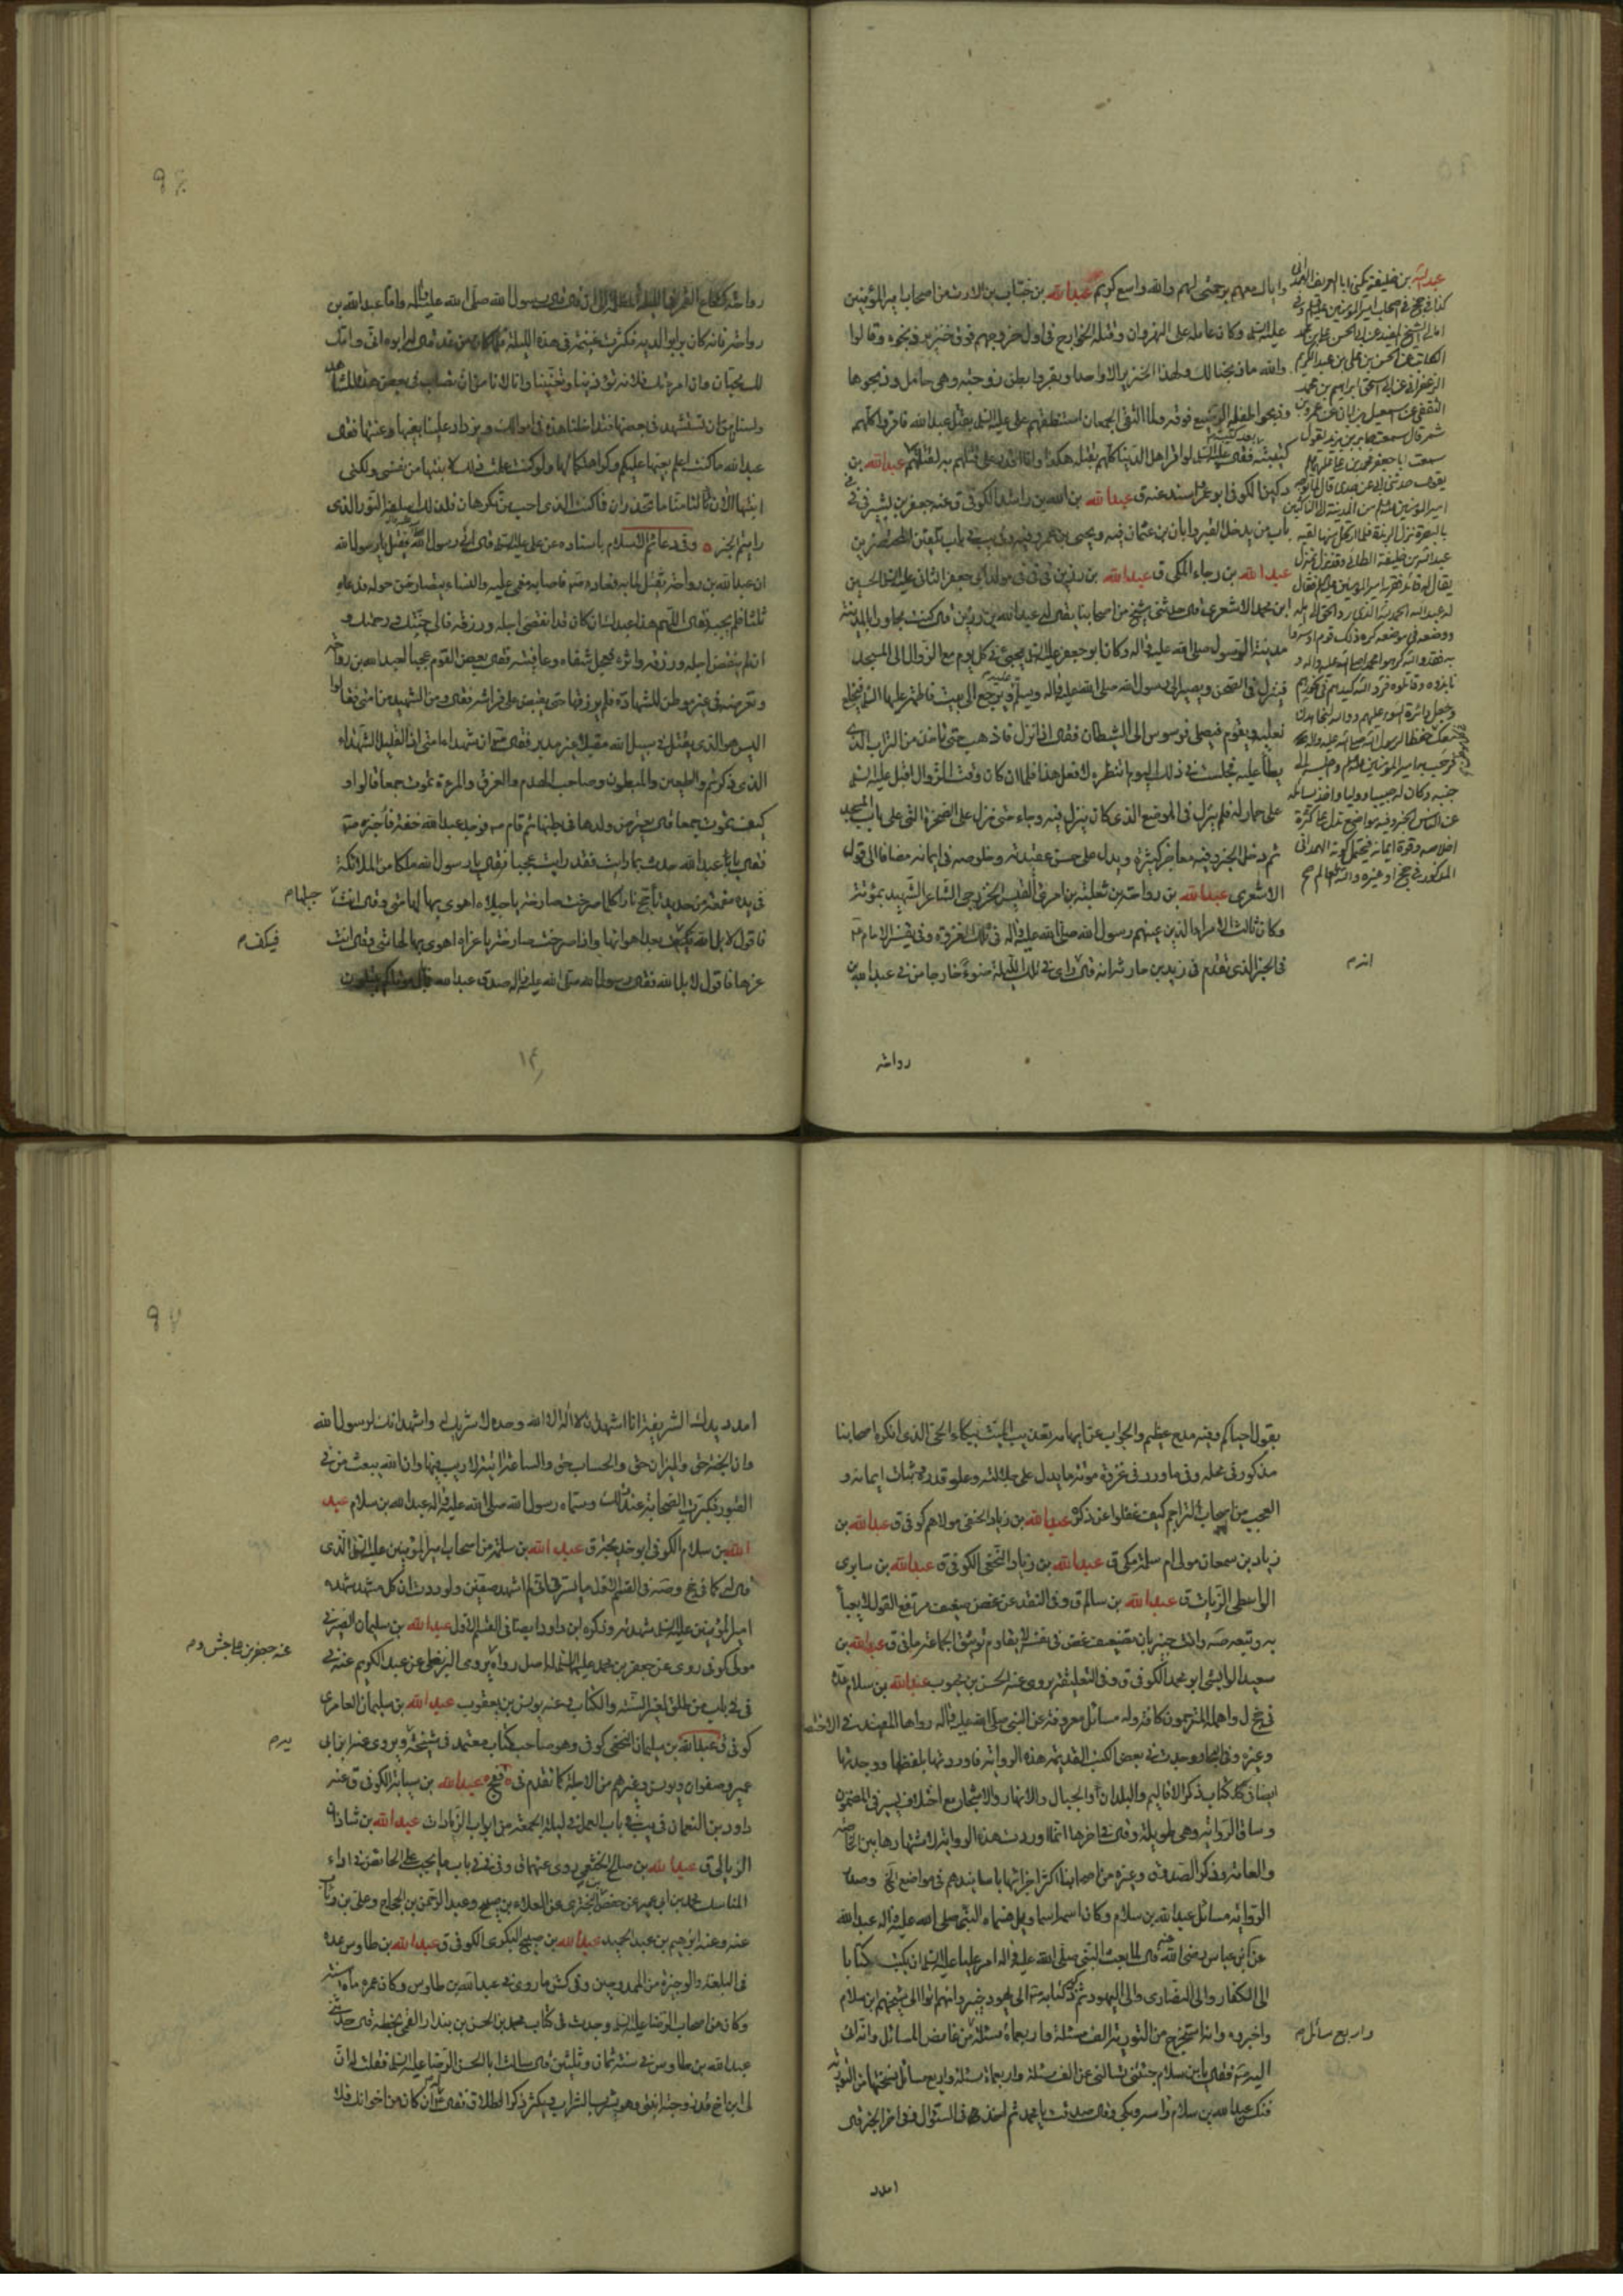 واياك معهم برحمتى لهم والله واسع كريم عبدالله بن خباب بن الارت من اصحاب اميرالمؤمنين
عليه السلم وكان عامله على النهروان وقتله الخوارج فى اول خروجهم فوق خنزير ذبحوه وقالوا
والله ما ذبحنا لك ولهذا الخنزير الا واحدا وبقروا بطن زوجته وهى حامل وذبحوها
وذبحوا طفله الرضيع فوقه ولما التقى الجمعان استنطقهم على عليه السلم بقتل عبدالله فاقروا كلهم
كتيبة بعد كتيبة فقال عليه السلم لو اقر اهل الدنيا كلهم بقتله هكذا وانا اقدر على قتلهم به لقتلتهم عبدالله بن
دكين الكوفى ابو عمر اسند عنه ق عبدالله بن راشد الكوفى ق عنه جعفر بن بشير فى
باب من يدخل القبر وابان بن عثمان فيه ويحيى بن عمرو فيه وفى يب فى باب تلقين المحتضرين
عبدالله بن رجاء المكى ق عبدالله بن رزين فى فى مولد ابى جعفر الثانى عليه السلم الحسين
ابن محمد الاشعرى قال حدثنى شيخ من اصحابنا يقال له عبدالله بن رزين قال كنت مجاورا بالمدينة
مدينة الرسول صلى الله عليه واله وكان ابو جعفر عليه السلم يجيئ فى كل يوم مع الزوال الى المسجد
فينزل فى الصحن ويصير الى رسول الله صلى الله عليه واله ويسلم عليه ويرجع الى بيت فاطمة عليها السلم فيخلع
نعليه ويقوم فيصلى فوسوس الى الشيطان فقال اذا نزل فاذهب حتى تاخذ من التراب الذى
يطأ عليه فجلست فى ذلك اليوم انتظره لافعل هذا فلما ان كان وقت الزوال اقبل عليه السلم
على حمار له فلم ينزل فى الموضع الذى كان ينزل فيه وجاء حتى نزل على الصخرة التى على باب المسجد
ثم دخل الخبر وفيه معاجز كثيرة ويدل على حسن عقيدته وخلوصه فى ايمانه مضافا الى قول
الاشعرى عبدالله بن رواحة بن ثعلبة بن امرئ القيس الخزرجى الشاعر الشهيد بموتة
وكان ثالث الامراء الذين عينهم رسول الله صلى الله عليه واله فى تلك الغزوة وفى تفسير الامام
فى الخبر الذى تقدم فى زيد بن حارثة انه قال راى فى تلك الليلة ضوءً خارجا من فى عبدالله بن
عبدالله بن خليفة يكنى ابا العريف الهمدانى
كذا فى جخ فى اصحاب اميرالمؤمنين عليه السلم وفى
امالى الشيخ المفيد عن ابى الحسن على بن محمد
الكاتب عن الحسن بن على بن عبدالكريم
الزعفرانى عن ابى اسحق ابراهيم بن محمد
الثقفى عن اسمعيل بن ابان عن عمرو بن
شمر قال سمعت جابر بن يزيد يقول
سمعت ابا جعفر محمد بن على عليهما السلم
يقول حدثنى ابى عن جدى قال لما توجه
اميرالمؤمنين عليه السلم من المدينة الى الناكثين
بالبصرة نزل الربذة فلما ارتحل منها لقيه
عبدالله بن خليفة الطائى وقد نزل بمنزل
يقال له قائد فقربه اميرالمؤمنين عليه السلم فقال
له عبدالله الحمد لله الذى رد الحق الى اهله
ووضعه فى موضعه كره ذلك قوم او سروا
به فقد والله كرهوا محمدا صلى الله عليه واله و
نابذوه وقاتلوه فرد الله كيدهم فى نحورهم
وجعل دائرة السوء عليهم ووالله لنجاهدن
معك حفظا لرسول الله صلى الله عليه واله
فرحب به اميرالمؤمنين عليه السلم واجلسه الى
جنبه وكان له حبيبا ووليا واخذ يسائله
عن الناس الخبر وفيه مواضع تدل على كثرة
اخلاصه وقوة ايمانه فيحتمل كونه الهمدانى
المذكور فى جخ او غيره والله العالم صح
رواحة
رواحة كشعاع القمر فى الليلة المظلمة الى ان قال قال رسول الله صلى الله عليه واله واما عبدالله بن
رواحة فانه كان برا بوالديه فكثرت غنيمته فى هذه الليلة فلما كان من غد قال له ابوه انى وامك
لك محبان وان امرأتك فلانة تؤذينا وتعنتنا وانا لا نامن ان تصاب فى بعض هذه المشاهد
ولسنا نامن ان تستشهد فى بعضها فتداخلنا هذه فى اموالك ويزداد علينا بغيها وعنتها فقال
عبدالله ما كنت اعلم بغيها عليكم وكراهتكما لها ولو كنت علمت ذلك لابنتها من نفسى ولكنى
ابنتها الان لتامنا ما تحذران فما كنت الذى احب من تكرهان فلذلك اسلفه الله النور الذى
رايتم الخبر وفى دعائم الاسلام باسناده عن على عليه السلم قال اتى رسول الله فقيل يا رسول الله
ان عبدالله بن رواحة ثقيل لما به فعاده فاصابه مغمى عليه والنساء يتصارخن حوله فدعاه
ثلثا فلم يجبه فقال اللهم هذا عبدك ان كان قد انقضى اجله ورزقه فالى جنتك ورحمتك و
ان لم ينقض اجله ورزقه واثره فعجل شفاه وعافيته فقال بعض القوم عجبا لعبدالله بن رواحة
وتعرضه فى غير موطن للشهادة فلم يرزقها حتى يقبض على فراشه فقال ومن الشهيد من امتى فقالوا
اليس هو الذى يقتل فى سبيل الله مقبلا غير مدبر فقال ان شهداء امتى اذا لقليل الشهداء
الذى ذكرتم والطعين والمبطون وصاحب الهدم والغرق والمرءة تموت جمعا قالوا و
كيف تموت جمعا قال يعترض ولدها فى بطنها ثم قام فوجد عبدالله خفة فأخبر
فقال يا عبدالله حدث بما رايت فقد رايت عجبا فقال يا رسول الله ملكا من الملائكة
فى يده مقمعة من حديد تأجج نارا كلما صرخت صارخة يا جبلاه اهوى بها لهامتى وقال انت
فاقول لا بل الله فيكف بعد اهوائها واذا صرخت صارخة يا عزاه اهوى بها لهامتى وقال انت
عزها فاقول لا بل الله فقال رسول الله صلى الله عليه واله صدق عبدالله
جبلها م
فيكف م
يقول احياكم وفيه مدح عظيم والجواب عن ايهامه تعذيب الميت ببكاء الحى الذى انكره اصحابنا
مذكور فى محله وفى ما ورد فى غزوة موتة ما يدل على جلالته وعلو قدره وثبات ايمانه و
العجب من اصحاب التراجم كيف غفلوا عن ذكره عبدالله بن زياد الحنفى مولاهم كوفى ق عبدالله بن
زياد بن سمعان مولى ام سلمة مكى ق عبدالله بن زياد النخعى الكوفى ق عبدالله بن سابرى
الواسطى الزيات ق عبدالله بن سالم ق وفى النقد عن غض ضعيف مرتفع القول لا يعبأ
به وتبعه صه وانت خبير بان تضعيف غض فى نفسه لا يقاوم توثيق الجماعة ما فى ق عبدالله بن
سعيد الوابشى ابو محمد الكوفى ق وفى التعليقة يروى عنه الحسن بن محبوب عبدالله بن سلام عده
فى جخ ل واهمله المترجمون كافة وله مسائل معروفة عن النبى صلى الله عليه واله رواها المفيد فى الاختصاص
وغيره وفى البحار وجدت فى بعض الكتب القديمة هذه الرواية فاوردتها بلفظها ووجدتها
ايضا فى كتاب ذكر الاقاليم والبلدان والجبال والانهار والاشجار مع اختلاف يسير فى المضمون
وساق الرواية وهى طويلة وقال فى اخرها انما اوردت هذه الرواية لاشتهارها بين الخاصة
والعامة وذكر الصدوق وغيره من اصحابنا اكثر اجزائها باسانيدهم فى مواضع الخ وصدر
الرواية مسائل عبدالله بن سلام وكان اسمه اسماويل فسماه النبى صلى الله عليه واله عبدالله
عن ابن عباس رضى الله عنه قال لما بعث النبى صلى الله عليه واله امر عليا عليه السلم ان يكتب كتابا
الى الكفار والى النصارى والى اليهود ثم ذكر كتابه الى يهود خيبر وانهم اتوا الى شيخهم ابن سلام
واخبروه وانه استخرج من التورية الف مسئلة واربعماة مسئلة من غامض المسائل وانه اتى
اليه فقال يا بن سلام جئتنى تسالنى عن الف مسئلة واربعماة مسئلة واربع مسائل نسختها من التورية
فنكس عبدالله بن سلام راسه وبكى وقال صدقت يا محمد ثم اخذ فى السئوال وفى اخر الخبر قال
واربع سائل م
امدد
امدد يدك الشريفة انا اشهد ان لا اله الا الله وحده لا شريك له واشهد انك لرسول الله
وان الجنة حق والميزان حق والحساب حق والساعة اتية لا ريب فيها وان الله يبعث من فى
القبور فكبرت الصحابة عند ذلك وسماه رسول الله صلى الله عليه واله عبدالله بن سلام عبد
الله بن سلام الكوفى ابو خديجة ق عبدالله بن سلمة من اصحاب اميرالمؤمنين عليه السلم الذى
قال له كما فى جخ وصه فى القسم الاول ما يسرنى انى لم اشهد صفين ولوددت ان كل مشهد شهده
اميرالمؤمنين عليه السلم شهدته وذكره ابن داود ايضا فى القسم الاول عبدالله بن سليمان الصيرفى
مولى كوفى روى عن جعفر بن محمد عليهما السلم له اصل رواه يروى البزنطى عن عبدالكريم عنه فى
فى فى باب من طلق لغير السنة والكتاب وعنه يونس بن يعقوب عبدالله بن سليمان العامرى
كوفى ق عبدالله بن سليمان النخعى كوفى وهو صاحب كتاب معتمد فى مشيخة ويروى عنه ابن ابى
عمير وصفوان ويونس وغيرهم من الاجلة كما تقدم فى قفح عبدالله بن سيابة الكوفى ق عنه
داود بن النعمان فى يب فى باب العمل فى ليلة الجمعة من ابواب الزيادات عبدالله بن شاذان
الزبالى ق عبدالله بن صالح الخثعمى روى عنهما فى وفى فى فى باب ما يجب على الحائض فى اداء
المناسك محمد بن ابى عمير عن حفص بن البخترى عن العلاء بن صبيح وعبدالرحمن بن الحجاج وعلى بن رئاب
عنه وعنه ابرهيم بن عبدالحميد عبدالله بن صبيح البكرى الكوفى ق عبدالله بن طاوس عده
فى البلغة والوجيزة من الممدوحين وفى كش ما روى فى عبدالله بن طاوس وكان عمره ماة سنة
وكان من اصحاب الرضا عليه السلم وجدت فى كتاب محمد بن الحسن بن بندار القمى بخطه قال حدثنى
عبدالله بن طاوس فى سنة ثمان وثلثين قال سالت ابا الحسن الرضا عليه السلم فقلت له ان
لى ابن اخ قد زوجته ابنتى وهو يشرب الشراب ويكثر ذكر الطلاق فقال ان كان من اخوانك فلا
عنه جعفر بن على حبش وم
يدم